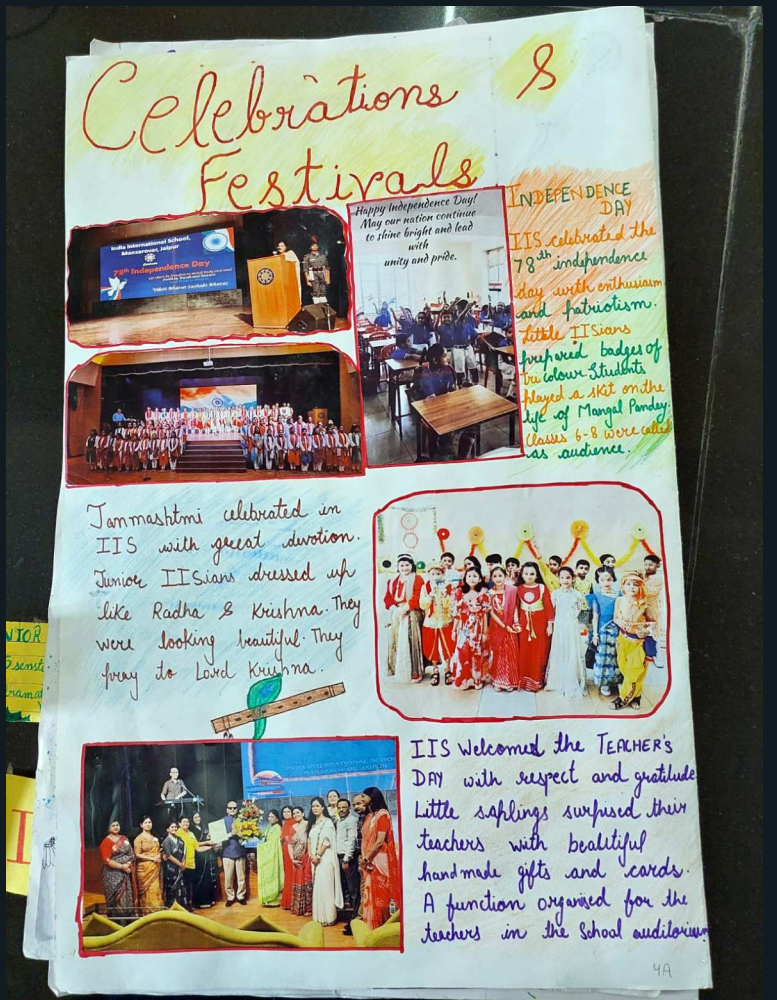 Celebrations &
Festivals
India International School,
Mansarovar, Jaipur
78th Independence Day
Happy Independence Day!
May our nation continue
to shine bright and lead
with
unity and pride.
INDEPENDENCE
DAY
IIS celebrated the
78th independence
day with enthusiasm
and patriotism.
Little IISians
prepared badges of
tri colour. Students
played a skit on the
life of Mangal Pandey.
Classes 6-8 were called
as audience.
Janmashtmi celebrated in
IIS with great devotion.
Junior IISians dressed up
like Radha & Krishna. They
were looking beautiful. They
pray to Lord Krishna.
IIS Welcomed the TEACHER'S
DAY with respect and gratitude
Little saplings surpised their
teachers with beautiful
handmade gifts and cards.
A function organised for the
teachers in the School auditorium
4A